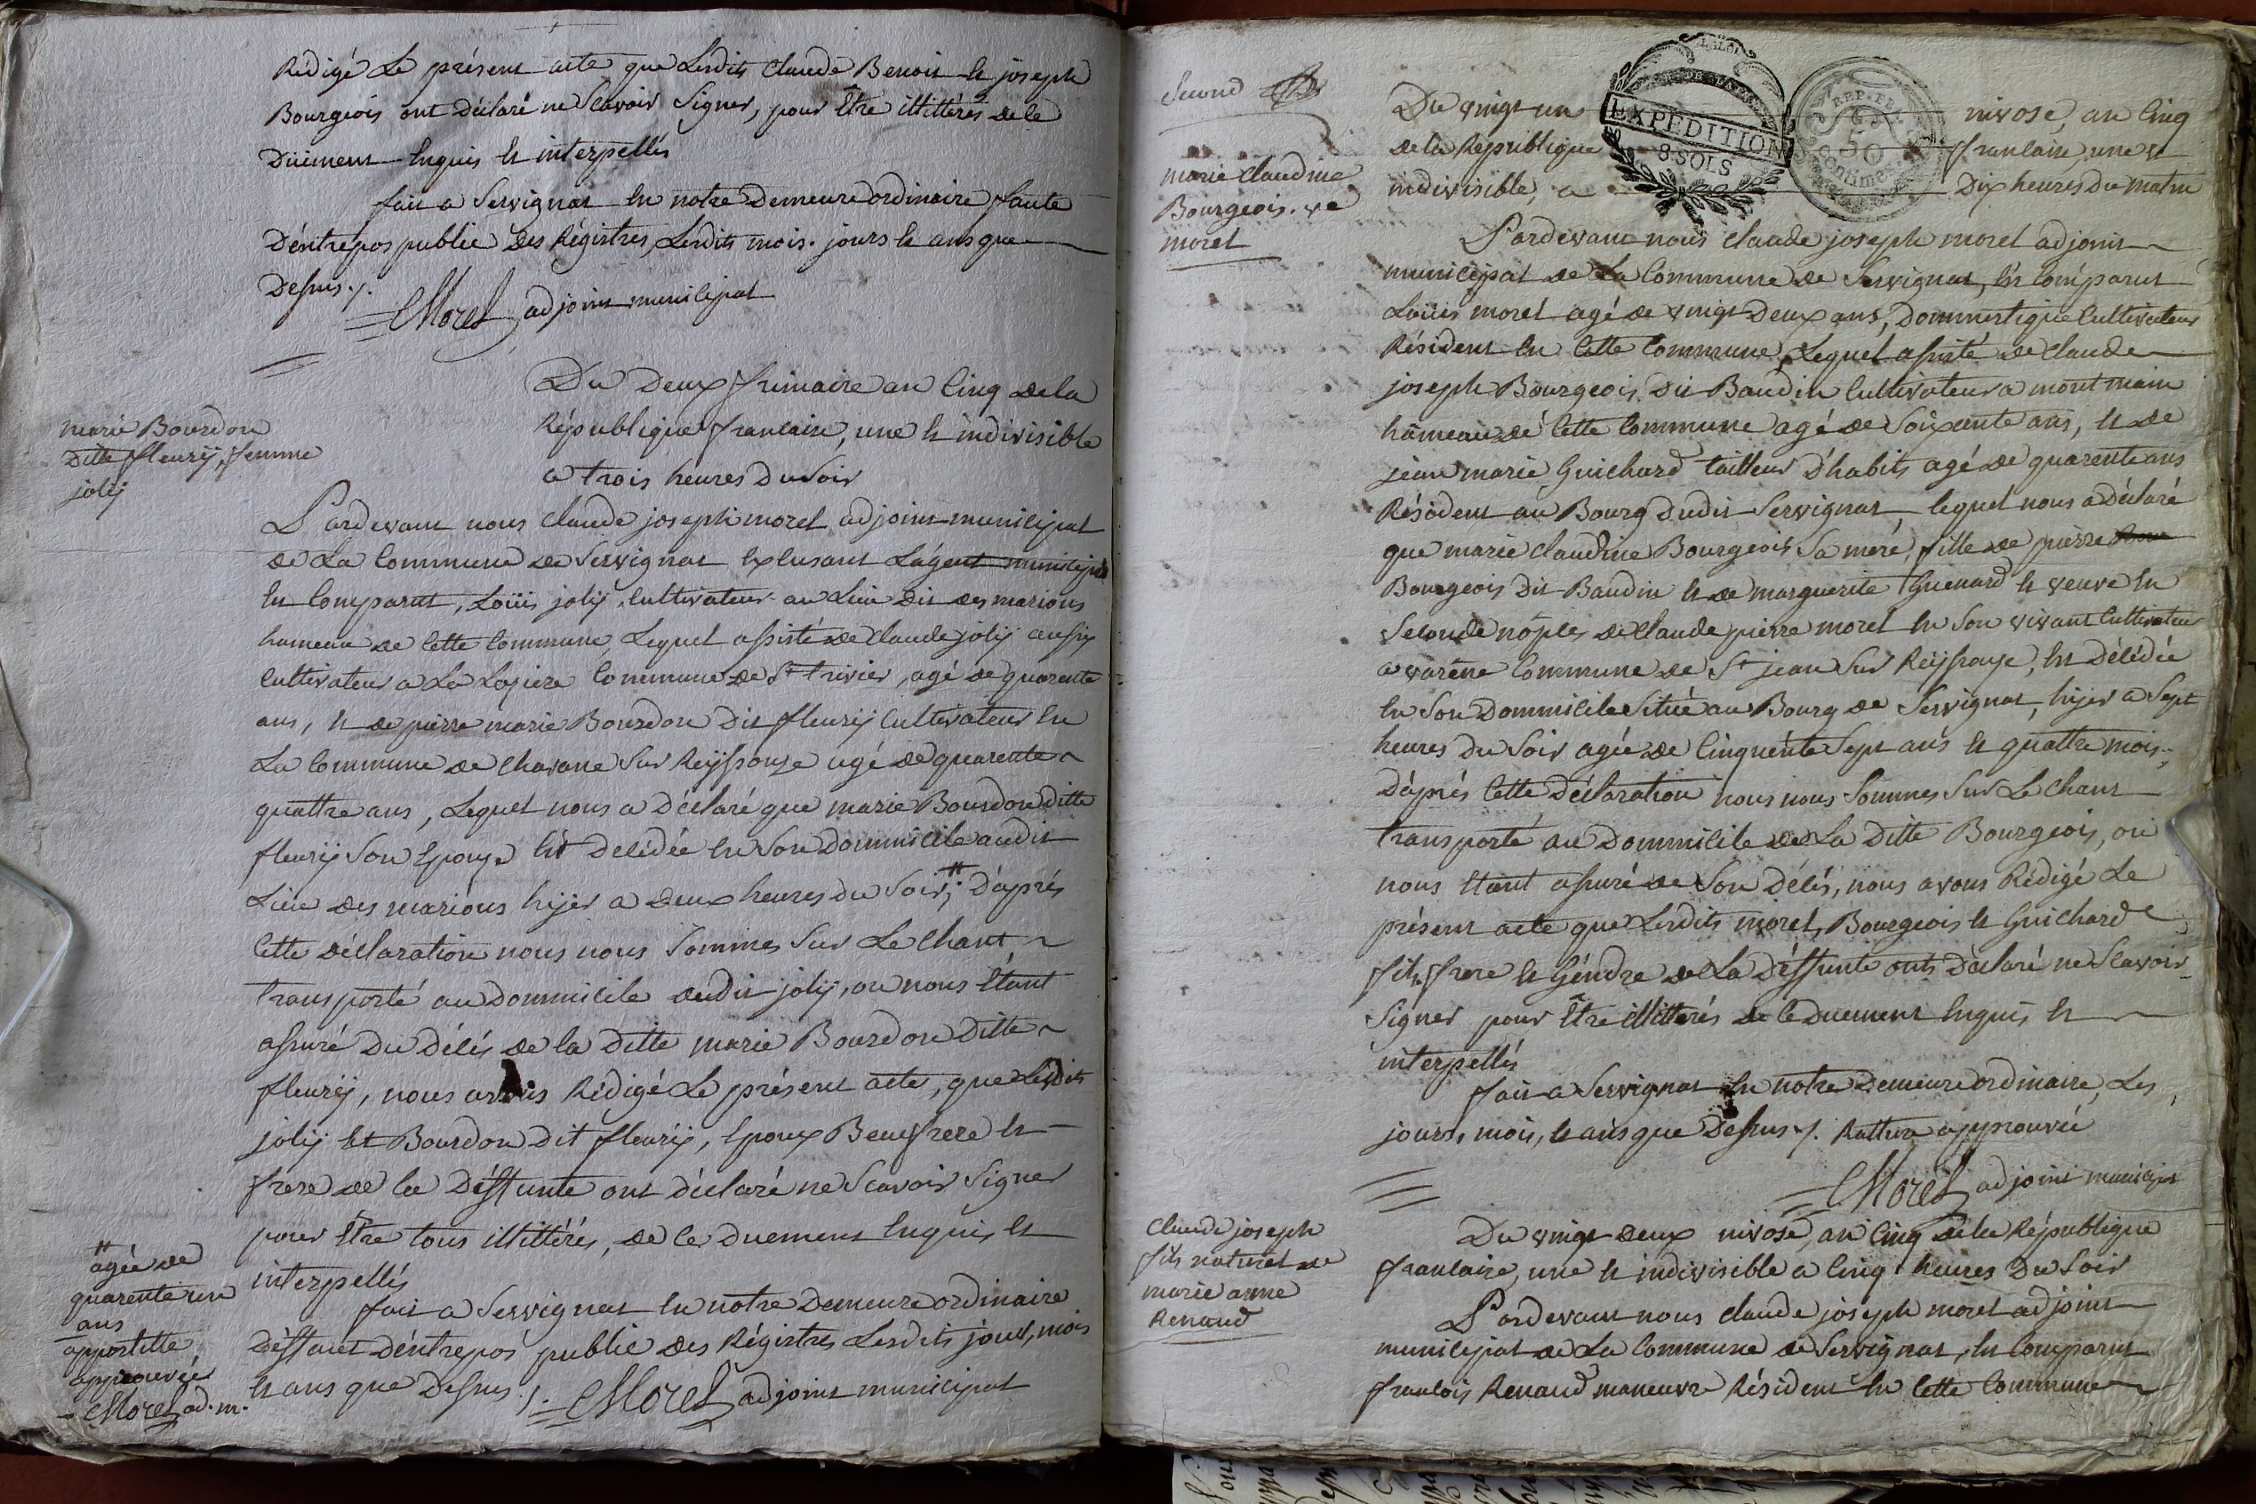 Rédigé Le présent acte que Lesdits Claude Benoit et joseph
Bourgeois ont déclaré ne Scavoir Signer, pour Être illittérés de ce
Düement Enquis et interpellés
fait a Servignat en notre Demeure ordinaire faute
Déntrepos public Des Régistres, Lesdits mois. jours et ans que
Dessus ./.
CMorel adjoint municipal
marie Bourdon
Ditte fleurÿ, femme
jolÿ
Du Deux frimaire an Cinq de la
République francaise, une et indivisible
a trois heures du Soir
Pardevant nous Claude joseph morel adjoint municipal
de La Commune de Servignat Exclusant Lágent municipal
Est Comparut, Loüis jolÿ, Cultivateur au Lieu Dit des marions
hameau de Cette Commune, Lequel assisté de Claude jolÿ aussÿ
Cultivateur a La Commune de St trivier, agé de quarante
ans, et de pierre marie Bourdon Dit fleurÿ Cultivateur En
La Commune de Chavane Sur Reÿssouze agé de quarente
quattre ans, Lequel nous a Déclaré que marie Bourdon ditte
fleurÿ Son Epouse Est Décédée En Son Dommicile audit
Lieu des marions hijer a deux heures du Soir, # D'aprés
Cette déclaration nous nous Sommes Sur Le Chant
transporté au Dommicile dudit jolÿ, ou nous Etant
assuré Du Décés de la Ditte marie Bourdon Ditte
fleurÿ, nous avons Rédigé Le présent acte, que Lesdits
jolÿ et Bourdon Dit fleurÿ, Epoux Beaufrere et
frere de la Déffunte ont déclaré ne Scavoir Signer
pour Être tous illittérés, de ce Duement Enquis et
interpellés
# agée de
quarente un
ans
appostille
approuvée
CMorel ad. m.
fait a Servignat En notre Demeure ordinaire
Déffaut déntrepos public des Régistres Lesdits jour, mois
et ans que Dessus ./. CMorel adjoint municipal
Second
marie Claudine
Bourgeois. ve
morel
Du vingt un nivose, an Cinq
de la République francaise, une et
indivisible, a Dix heures du matin
EXPEDITION
8 SOLS
REP. FR.
50
Centimes
Pardevant nous Claude joseph morel adjoint
municipal de La Commune de Servignat, Est Comparut
Loüis morel agé de vingt Deux ans, Dommestique Cultivateur
Résident En Cette Commune, Lequel assisté de Claude
joseph Bourgeois Dit Baudin Cultivateur a
hâmeau dé Cette Commune agé de Soixante ans, et de
jean marie Guichard tailleur D'habits agé de quarente ans
Résident au Bourg Dudit Servignat, lequel nous a déclaré
que marie Claudine Bourgeois Sa mere, fille de pierre
Bourgeois Dit Baudin et de marguerite Guenard et veuve En
Seconde nôples de Claude pierre morel En Son vivant Cultivateur
a varêne Commune de St jean Sur Reÿssouze, Est Décédée
En Son Dommicile Situé au Bourg de Servignat, hijer a Sept
heures Du Soir agée de Cinquénte Sept ans et quattre mois,
D'aprés Cette Déclaration nous nous Sommes Sur Le Chant
transporté au Dommicile de La Ditte Bourgeois, ou
nous Etant assuré de Son Décés, nous avons Rédigé Le
présent acte que Lesdits morel, Bourgeois et Guichard
fils, frere et Géndre de La Déffunte onts Déclaré ne Scavoir
Signer pour Être illittérés de ce Duement Enquis et
interpellés
fait a Servignat En notre Demeure ordinaire, Les
jours, mois, et ans que Dessus ./. Rature approuvée
CMorel adjoint municipal
Claude joseph
fils naturel de
marie anne
Renaud
Du vingt deux nivose, an Cinq de la République
francaise, une et indivisible a Cinq heures Du Soir
Pardevant nous Claude joseph morel adjoint
municipal de La Commune de Servignat, Est Comparut
francois Renaud maneuvre Résident En Cette Commune